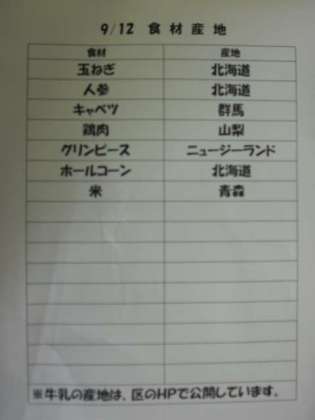 9/12 食材産地
食材 産地
玉ねぎ 北海道
人参 北海道
キャベツ 群馬
鶏肉 山梨
グリンピース ニュージーランド
ホールコーン 北海道
米 青森
※牛乳の産地は、区のHPで公開しています。